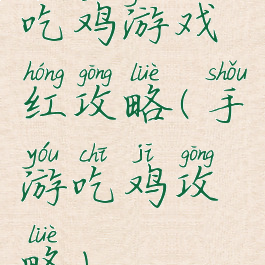 吃鸡游戏
hóng gōng lüè shǒu
红攻略(手
yóu chī jī gōng
游吃鸡攻
lüè
略)